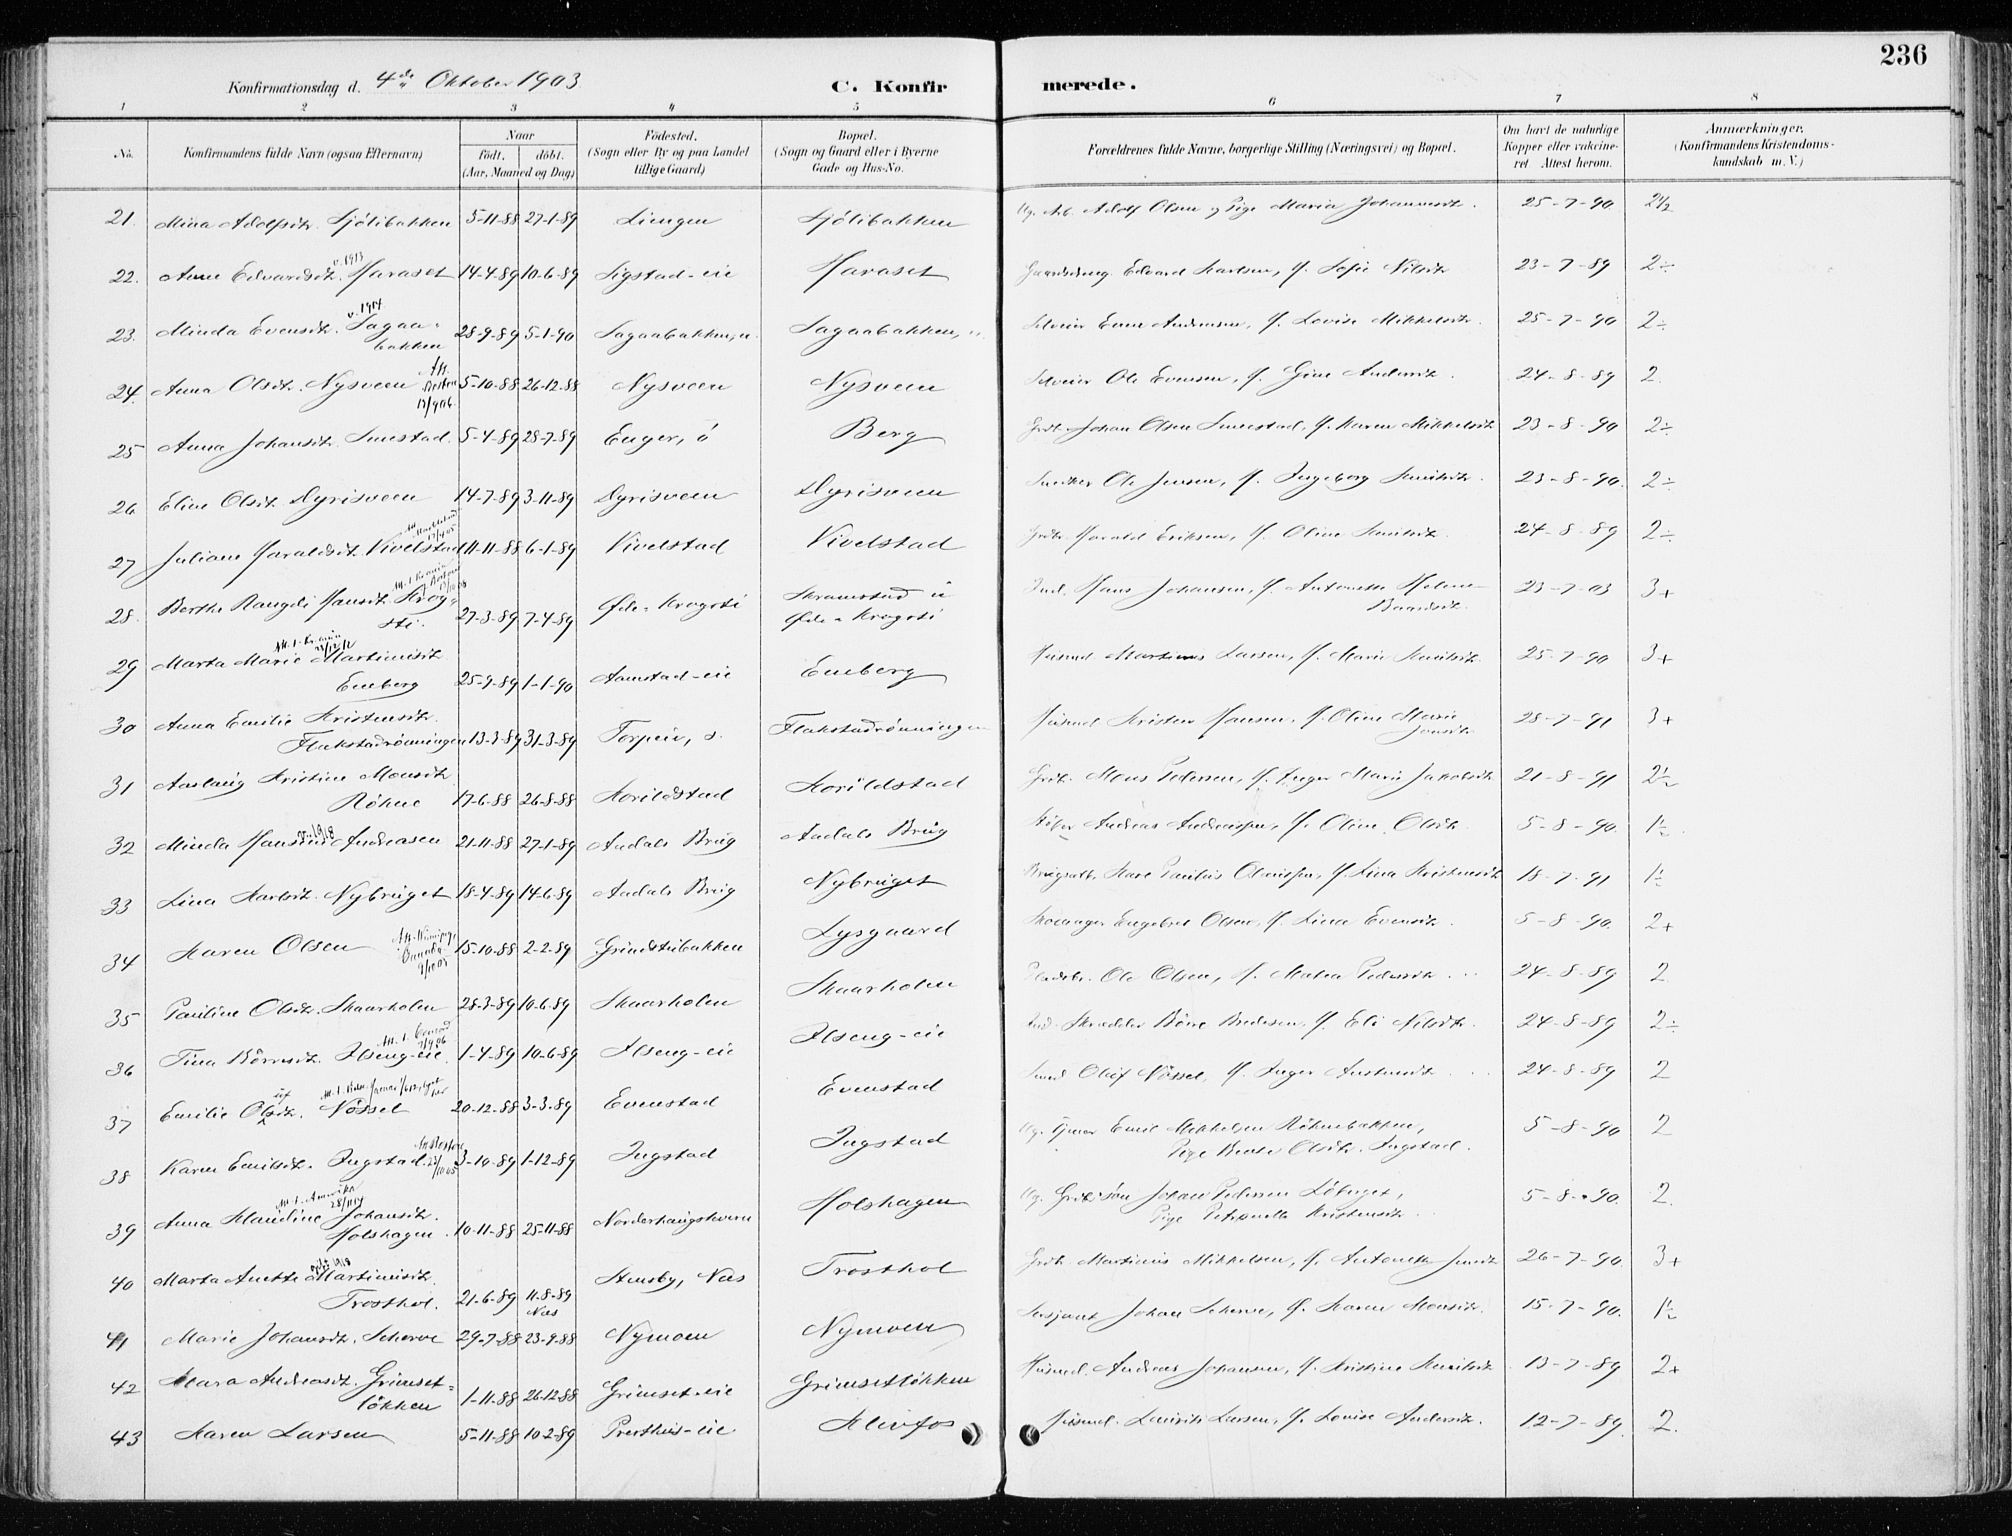 236
Konfirmationsdag d. 4de Oktober 1903 C. Konfirmerede.
1 2 3 4 5 6 7 8
No. Konfirmandens fulde Navn (ogsaa Efternavn) Naar født. døbt. (Aar, Maaned og Dag) Fødested. (Sogn eller By og paa Landet tillige Gaard) Bopæl. (Sogn og Gaard eller i Byerne Gade og Hus-No. Forældrenes fulde Navne, borgerlige Stilling (Næringsvei) og Bopæl. Om havt de naturlige Kopper eller vakcineret Attest herom. Anmærkninger. (Konfirmandens Kristendomskundskab m. V.)
21. Mina Adolfsdt. Sjölibakken 5-11-88 27-1-89 Liengen Sjölibakken Ug. Arb. Adolf Olsen og Pige Maria Johannesdt. 25-7-90 2½
22. Anne Edvardsdt. Haraset v. 1913 14-4-89 10-6-89 Sigstad-eie Haraset Edvard Karlsen, H. Sofie Nilsdt. 23-7-89 2÷
23. Minda Evensdt. Sagaabakken v. 1914 28-9-89 5-1-90 Sagaabakken, Sagaabakken, Selveier Even Andersen, H. Lovise Mikkelsdt. 25-7-90 2÷
24. Anna Olsdt. Nysveen 5-10-88 26-12-88 Nysveen Nysveen Selveier Ole Evensen, H. Gine Andersdt. 24-8-89 2.
25 Anna Johansdt. Smestad 5-4-89 28-7-89 Enger, ö Berg Grdbr. Johan Olsen Smestad, H. Karen Mikkelsdt. 23-8-90 2÷
26 Eline Olsdt. Dyrisveen 14-7-89 3-11-89 Dyrisveen Dyrisveen Snedker Ole Jensen, H. Ingeborg 23-8-90. 2÷
27 Juliane Haraldsdt. Kivelstad 11-11-88 6-1-89 Kivelstad Kivelstad Grdbr. Harald Eriksen, H. Oline 24-8-89 2÷
28. Berthe Rangdi Hansdt. Krogsti. 27-3-89 7-4-89 Øde-Krogsti Skramstad u Øde-Krogsti Ind. Hans Johansen, H. Antonette Helene Baardsdt. 23-7-03 3+
29 Marta Marie Martinisdt. Eneberg 25-9-89 1-1-90 Aamstad-eie Eneberg Husmd. Martinus Larsen, H. Marie 25-7-90 3+
30 Anna Emilie Kristensdt. Flakstadrönningen 13-3-89 31-3-89 Torpen, s. Flakstadrönningen Husmd. Kristen Hansen, H. Oline Marie Jonsdt. 28-7-91 3+
31 Aaslaug Kristine Monsdt. Röhne 17-6-88 26-8-88 Horildstad Horildstad Grdbr. Mons Pedersen, H. Inger Marie Jakobsdt. 21-8-91 2½
32 Minda Hansine Andreasen 1918 21-11-88 27-1-89 Aadals Brug Aadals Brug Andreas H. Oline Olsdt. 5-8-90. 1½
33 Lina Karlsdt. Nybruget 18-4-89 14-6-89 Aadals Brug Nybruget Karl Paulus H. Lina Kristensdt. 18-7-91 1½
34 Karen Olsen 15-10-88 2-2-89 Grundstubakken Lysgaard Skomager Engebret Olsen, H. Lina Evensdt. 5-8-90. 2+
35 Pauline Olsdt. Skaarholen 28-3-89 10-6-89 Skaarholen Skaarholen Ole Olsen, H. Matea Pedersdt. 24-8-89 2
36 Tina Börresdt. Alseng-eie 1-4-89 10-6-89 Alseng-eie Alseng-eie Ind. Skrædder Börre Bredesen H. Eli Nilsdt. 24-8-89 2÷
37 Emilie Olufsdt. Nössel 20-12-88 3-3-89 Evenstad Evenstad Smed Oluf Nössel, H. Inger 24-8-89 2
38 Karen Emilsdt. Ingstad. 3-10-89 1-12-89 Ingstad Ingstad Ug. Emil Mikkelsen Röhnebakken, Pige Olsdt. Ingstad. 5-8-90 2
39 Anna Klaudine Johansdt. Holshagen 10-11-88 25-11-88 Norderhaugskvern Holshagen Ug. Johan Pedersen Löberget, Pige Petronelle Kristensdt. 5-8-90. 2
40 Marta Anette Martinusdt. Trosthol. 21-6-89 11-8-89 Næs Stensby, Næs Trosthol Grdbr. Martinus Mikkelsen, H. Antonette 26-7-90. 3+
41 Marie Johansdt. Scherve 29-7-88 23-9-88 Nymoen Nymoen Sersjant Johan Scherve, H. Karen Monsdt. 15-7-90. 1½
42 Mara Andreasdt. Grimsetlökken 1-11-88 26-12-88 Grimset-eie Grimsetlökken Husmd. Andreas Johansen, H. Kristine 13-7-89 2+
43 Karen Larsen 5-11-88 10-2-89 Presthus-eie Klevfos Husmd. Laurits Larsen, H. Lovise Andersdt. 12-7-89. 2.